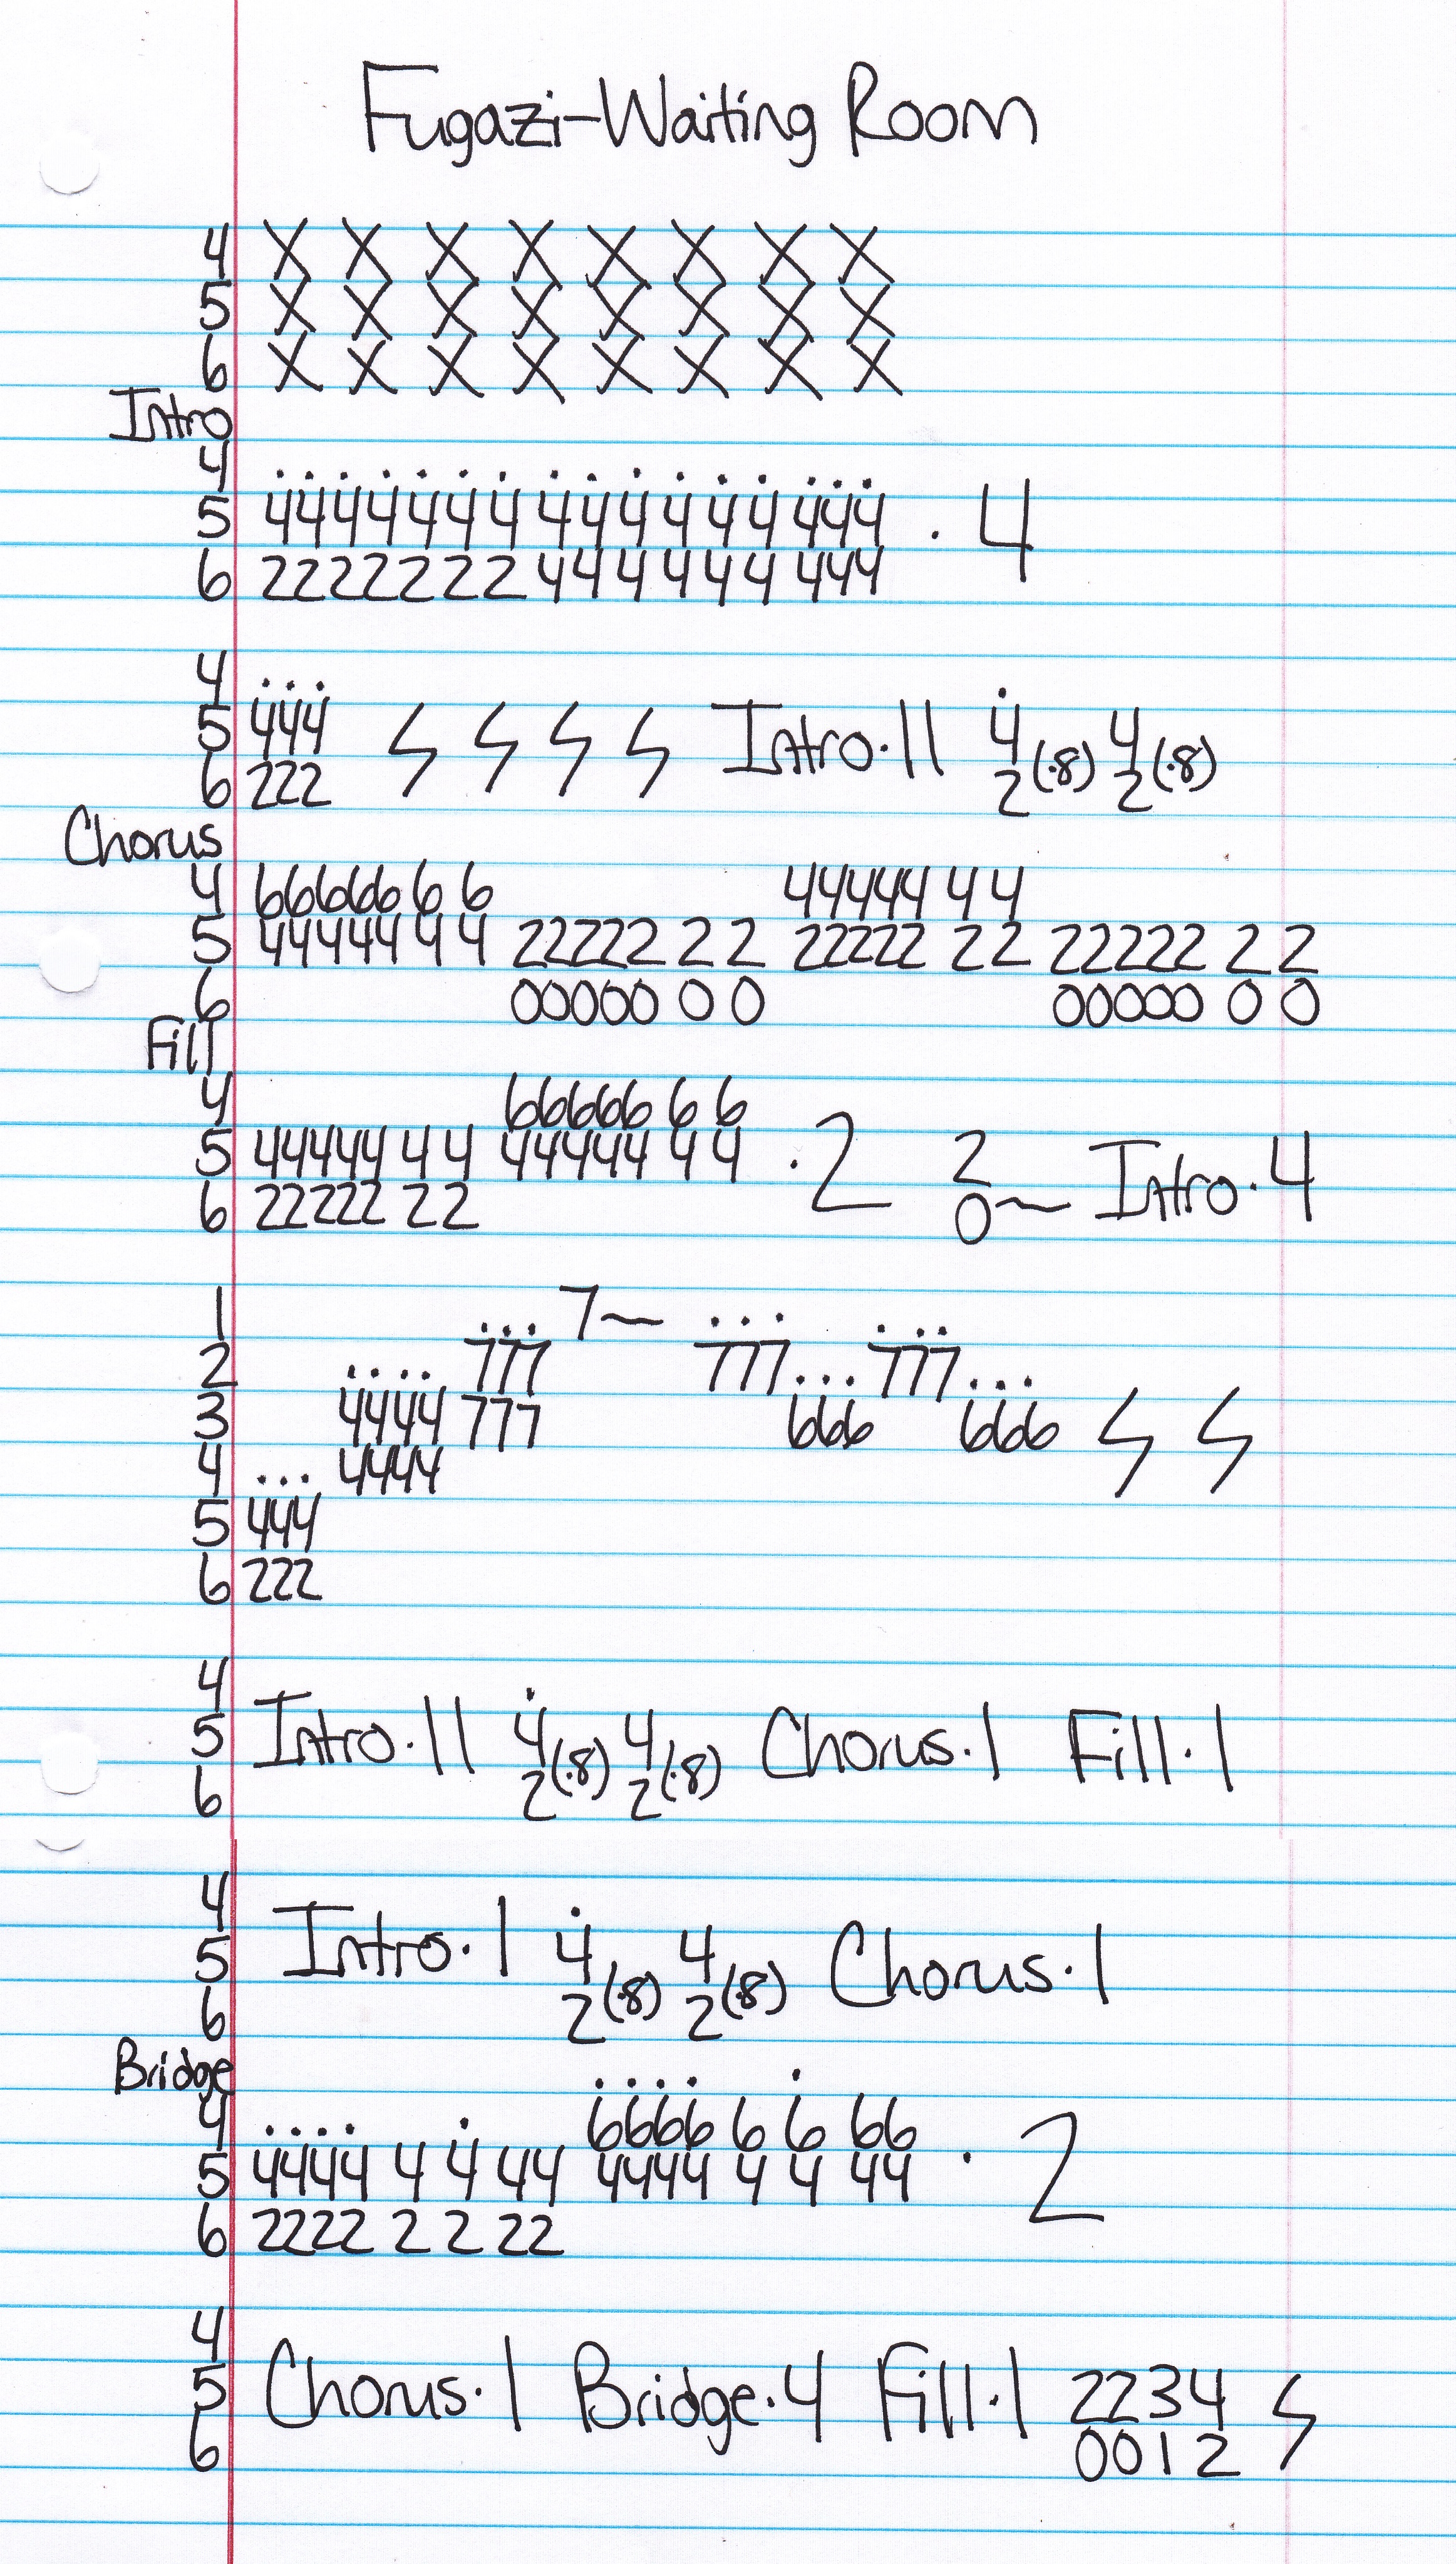 Fugazi-Waiting Room
4 X X X X X X X X
5 X X X X X X X X
6 X X X X X X X X
Intro
4
5 4444444 444444 444 · 4
6 2222222 444444 444
4
5 444 Intro·11 4 (·8) 4 (·8)
6 222 2 2
Chorus
4 66666 6 6 44444 4 4
5 44444 4 4 22222 2 2 22222 2 2 22222 2 2
6 00000 0 0 00000 0 0
Fill
4 66666 6 6
5 44444 4 4 44444 4 4 ·2 2 Intro·4
6 22222 2 2 0~
1 ... 7~ ... ...
2 .... 777 777... 777...
3 4444 777 666 666
4 ... 4444
5 444
6 222
4
5 Intro·11 4 (·8) 4 (·8) Chorus·1 Fill·1
6 2 2
4
5 Intro·1 4 (·8) 4 (·8) Chorus·1
6 2 2
Bridge
4 6666 6 6 66
5 4444 4 4 44 4444 4 4 44 · 2
6 2222 2 2 22
4
5 Chorus·1 Bridge·4 Fill·1 2234
6 0012